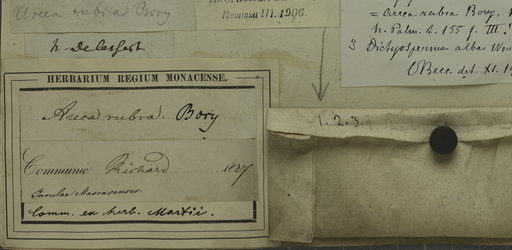 Areca rubra Bory
Recensu III. 1906.
= Areca rubra Bory,
h. Palm. t. 155 f. III.
3 Dictyosperma alba
OBecc. det. XI.
HERBARIUM REGIUM MONACENSE.
Areca rubra. Bory
Communic. Richard 1827
Insulae Mascarenses.
Comm. ex herb. Martii.
1. 2. 3.